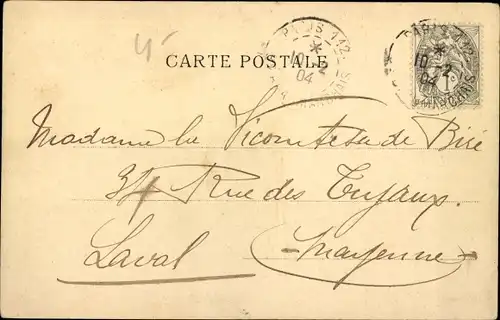 CARTE POSTALE
PARIS 112
10 - 2
04
PARIS 112
10 - 2
04
1c
Madame la Vicomtesse de Biré
34 Rue des Tuyaux.
Laval (-Mayenne-)